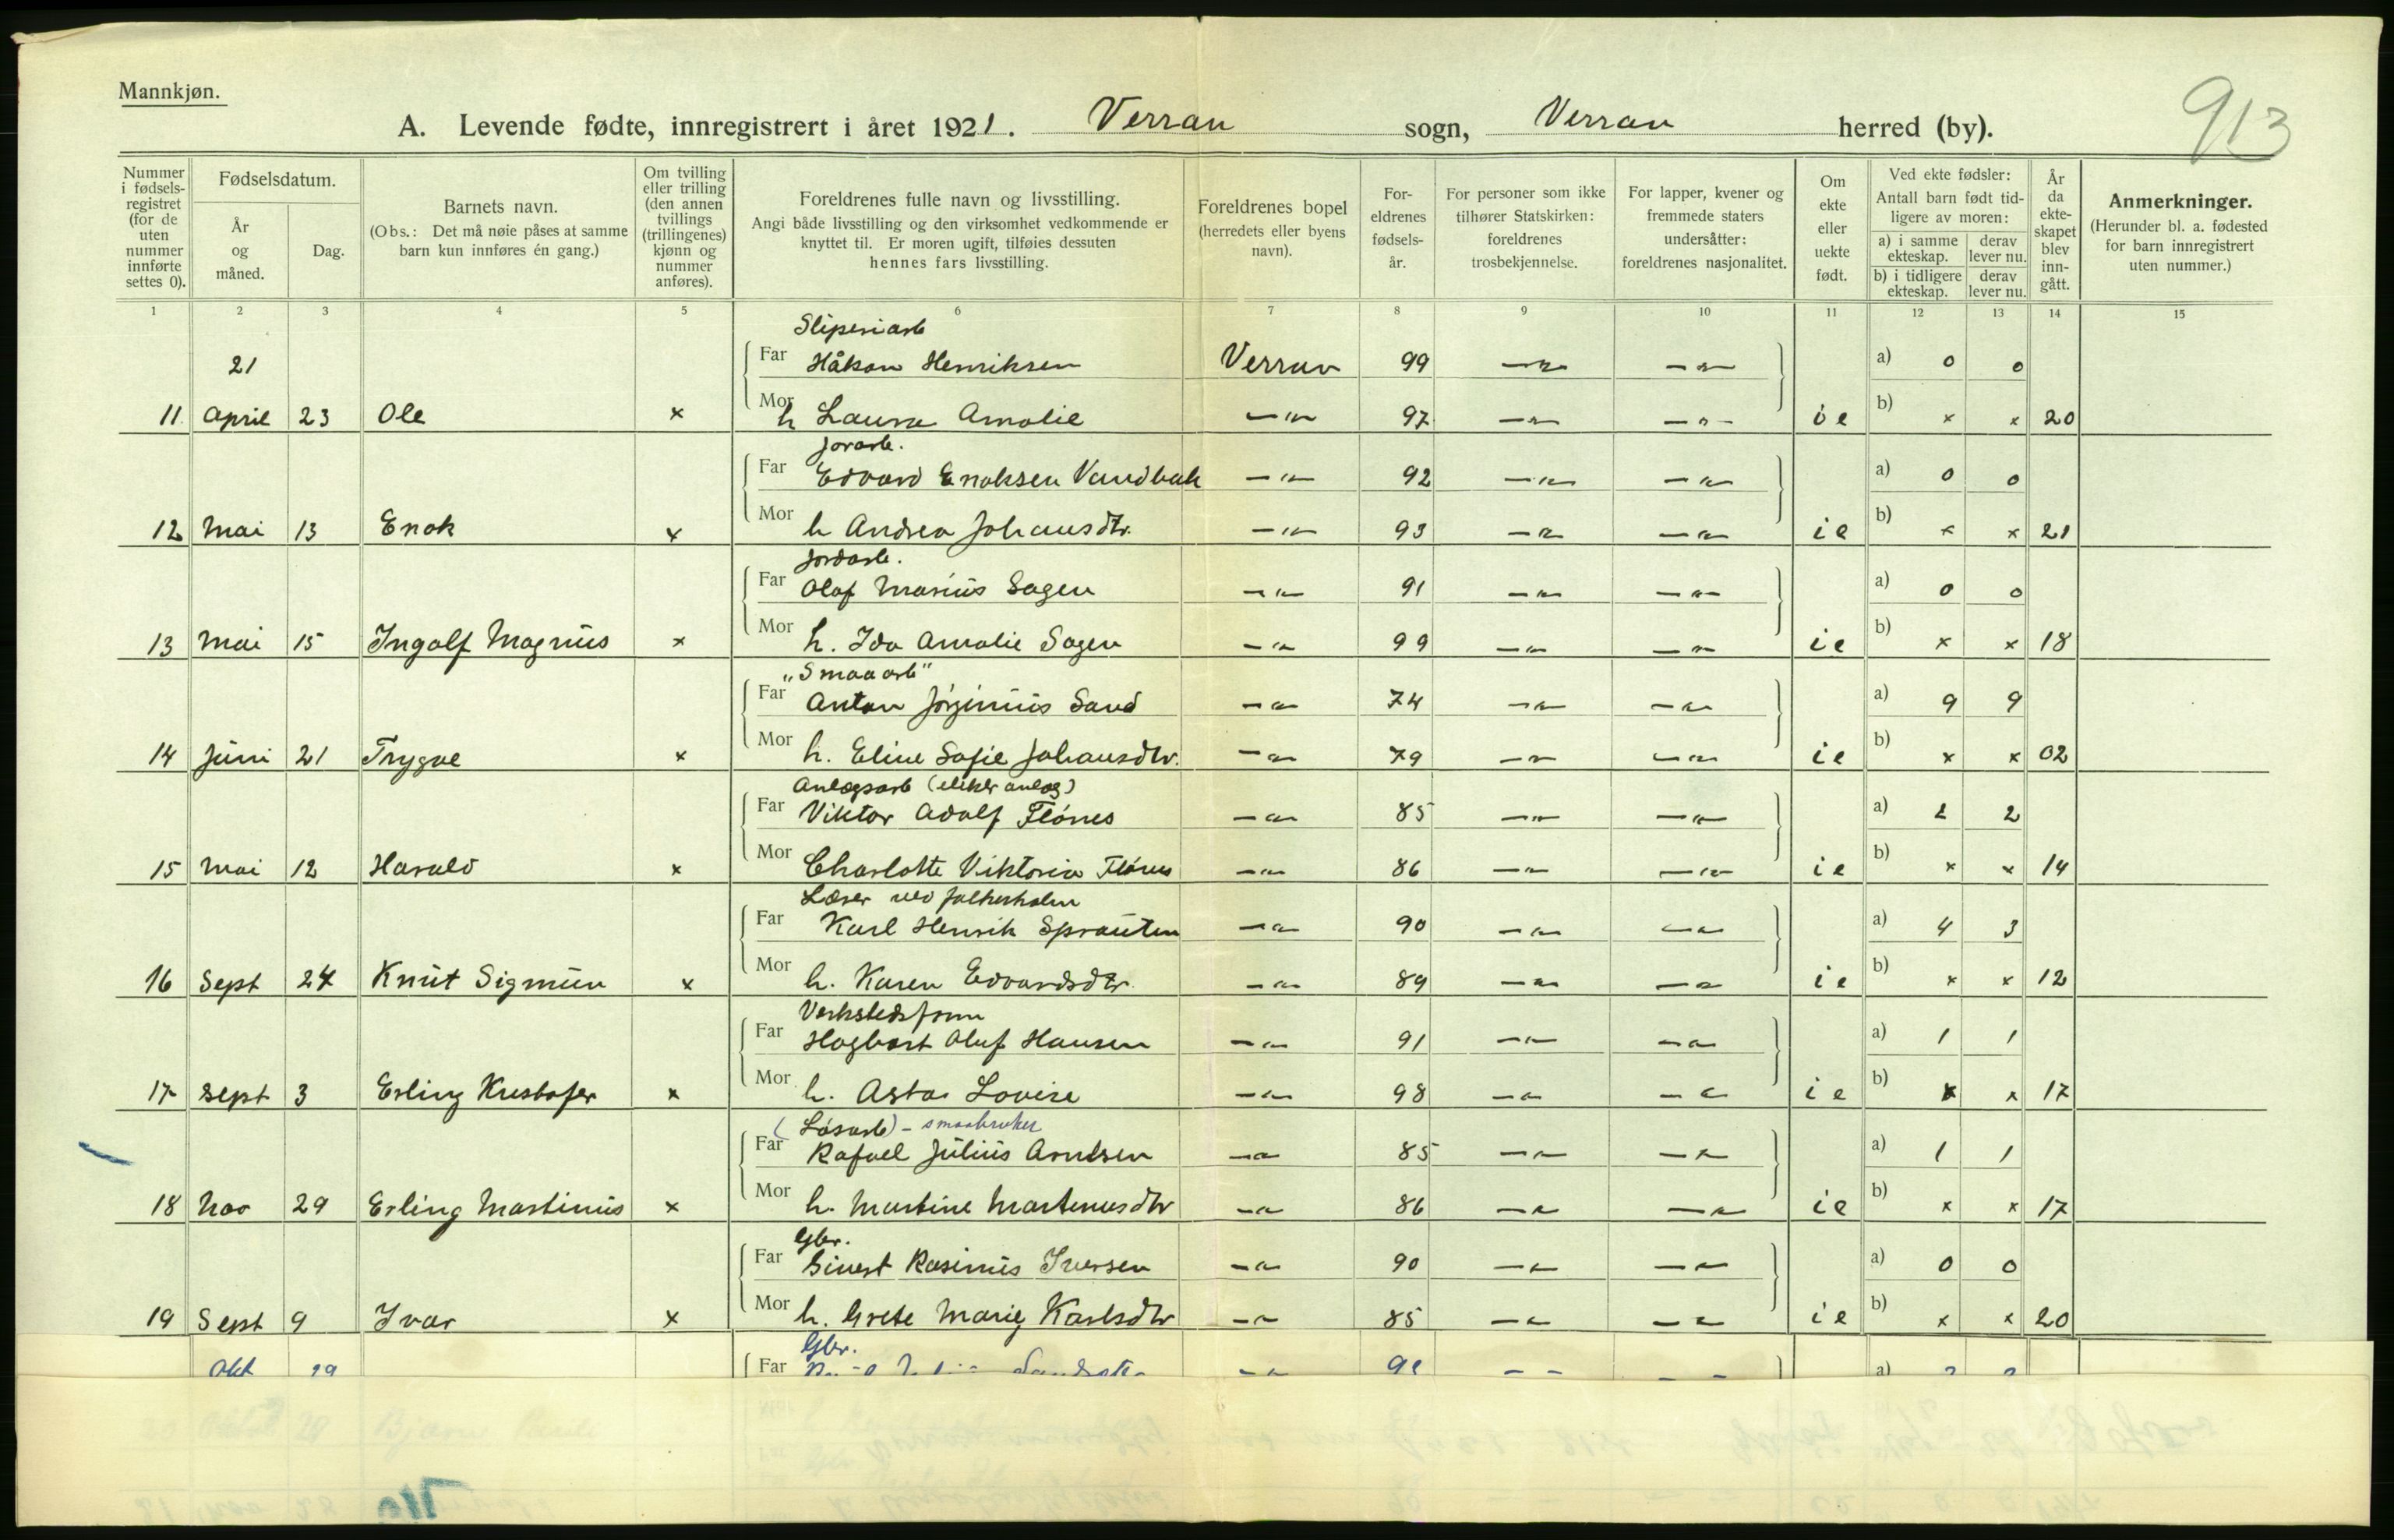 Mannkjøn.
913
A. Levende fødte, innregistrert i året 1921. Verran sogn, Verran herred (by).
Nummer i fødsels-registret (for de uten nummer innførte settes 0).
Fødselsdatum.
År og måned.
Dag.
Barnets navn.
(Obs.: Det må nøie påses at samme barn kun innføres én gang.)
Om tvilling eller trilling (den annen tvillings (trillingenes) kjønn og nummer anføres).
Foreldrenes fulle navn og livsstilling.
Angi både livsstilling og den virksomhet vedkommende er knyttet til. Er moren ugift, tilføies dessuten hennes fars livsstilling.
Foreldrenes bopel (herredets eller byens navn).
For-eldrenes fødsels-år.
For personer som ikke tilhører Statskirken: foreldrenes trosbekjennelse.
For lapper, kvener og fremmede staters undersåtter: foreldrenes nasjonalitet.
Om ekte eller uekte født.
Ved ekte fødsler:
Antall barn født tid-ligere av moren:
a) i samme ekteskap. derav lever nu.
b) i tidligere ekteskap. derav lever nu.
År da ekte-skapet blev inn-gått.
Anmerkninger.
(Herunder bl. a. fødested for barn innregistrert uten nummer.)
1 2 3 4 5 6 7 8 9 10 11 12 13 14 15
Sliperiarb
21 Far Håkon Henriksen Verran 99 —"— —"— a) 0 0
11 April 23 Ole × Mor h Laura Amalie —"— 97 —"— —"— ie b) × × 20
Jorarb.
Far Edvard Enoksen Vandbak —"— 92 —"— —"— a) 0 0
12 Mai 13 Enok × Mor h Andrea Johansdtr. —"— 93 —"— —"— ie b) × × 21
Jordarb.
Far Olaf Marius Sagen —"— 91 —"— —"— a) 0 0
13 Mai 15 Ingolf Magnus × Mor h. Ida Amalie Sagen —"— 99 —"— —"— ie b) × × 18
"Smaaarb"
Far Anton Jørginius Sand —"— 74 —"— —"— a) 9 9
14 Juni 21 Trygve × Mor h. Eline Sofie Johansdtr. —"— 79 —"— —"— ie b) × × 02
Anlægsarb (elektr anlæg)
Far Viktor Adolf Flönes —"— 85 —"— —"— a) 2 2
15 Mai 12 Harald × Mor Charlotte Viktoria Flönes —"— 86 —"— —"— ie b) × × 14
Lærer ved folkeskolen
Far Karl Henrik Sprauten —"— 90 —"— —"— a) 4 3
16 Sept 24 Knut Sigmun × Mor h. Karen Edvardsdtr. —"— 89 —"— —"— ie b) × × 12
Verkstedsform
Far Hagbart Oluf Hansen —"— 91 —"— —"— a) 1 1
17 Sept 3 Erling Kristofer × Mor h. Asta Lovise —"— 98 —"— —"— ie b) × × 17
(Løsarb) - smaabruker
Far Rafael Julius Arntsen —"— 85 —"— —"— a) 1 1
18 Nov 29 Erling Martinius × Mor h. Martine Martinusdtr —"— 86 —"— —"— ie b) × × 17
Gbr.
Far Einert Rasinius Iversen —"— 90 —"— —"— a) 0 0
19 Sept 9 Ivar × Mor h. Grete Marie Karlsdtr —"— 85 —"— —"— ie b) × × 20
Gbr.
Okt 29 Far —"— — — — — a)